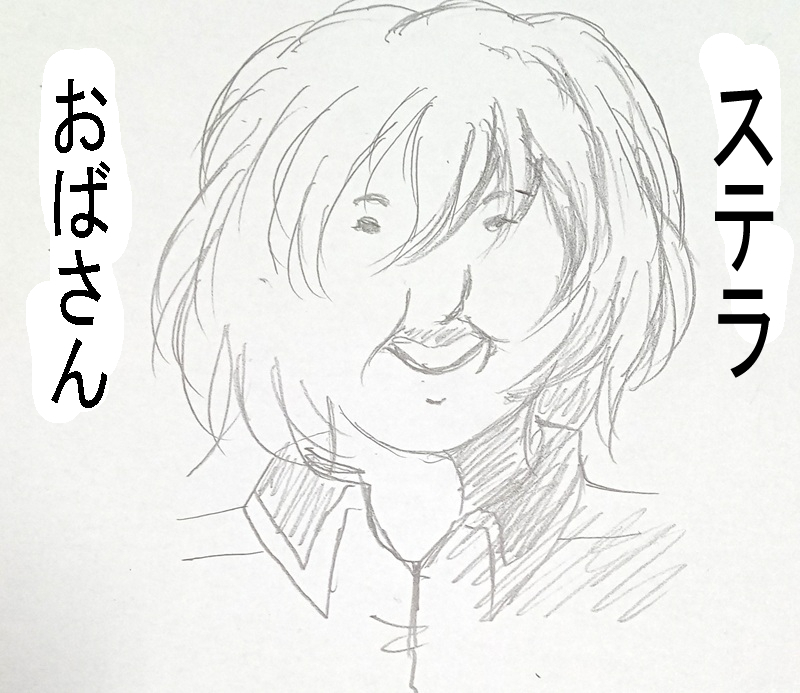 ステラ
おばさん